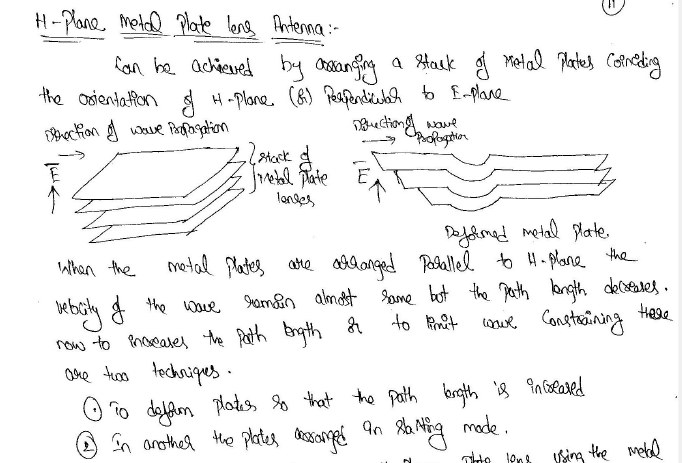 11
H-Plane Metal Plate lens Antenna :-
Can be achieved by arranging a Stack of Metal Plates Coinciding
the orientation of H-Plane (&) Perpendicular to E-Plane
Direction of wave Propagation
Direction of wave
Propagation
E
Stack of
metal Plate
lenses
E
Deformed metal Plate.
When the metal Plates are arranged Parallel to H-Plane the
velocity of the wave remain almost same but the Path length decreases.
now to increases the Path length & to limit wave Constraining there
are two techniques.
① To deform Plates so that the Path length is increased
② In another the plates arranged in slanting mode.
Plate lens using the metal